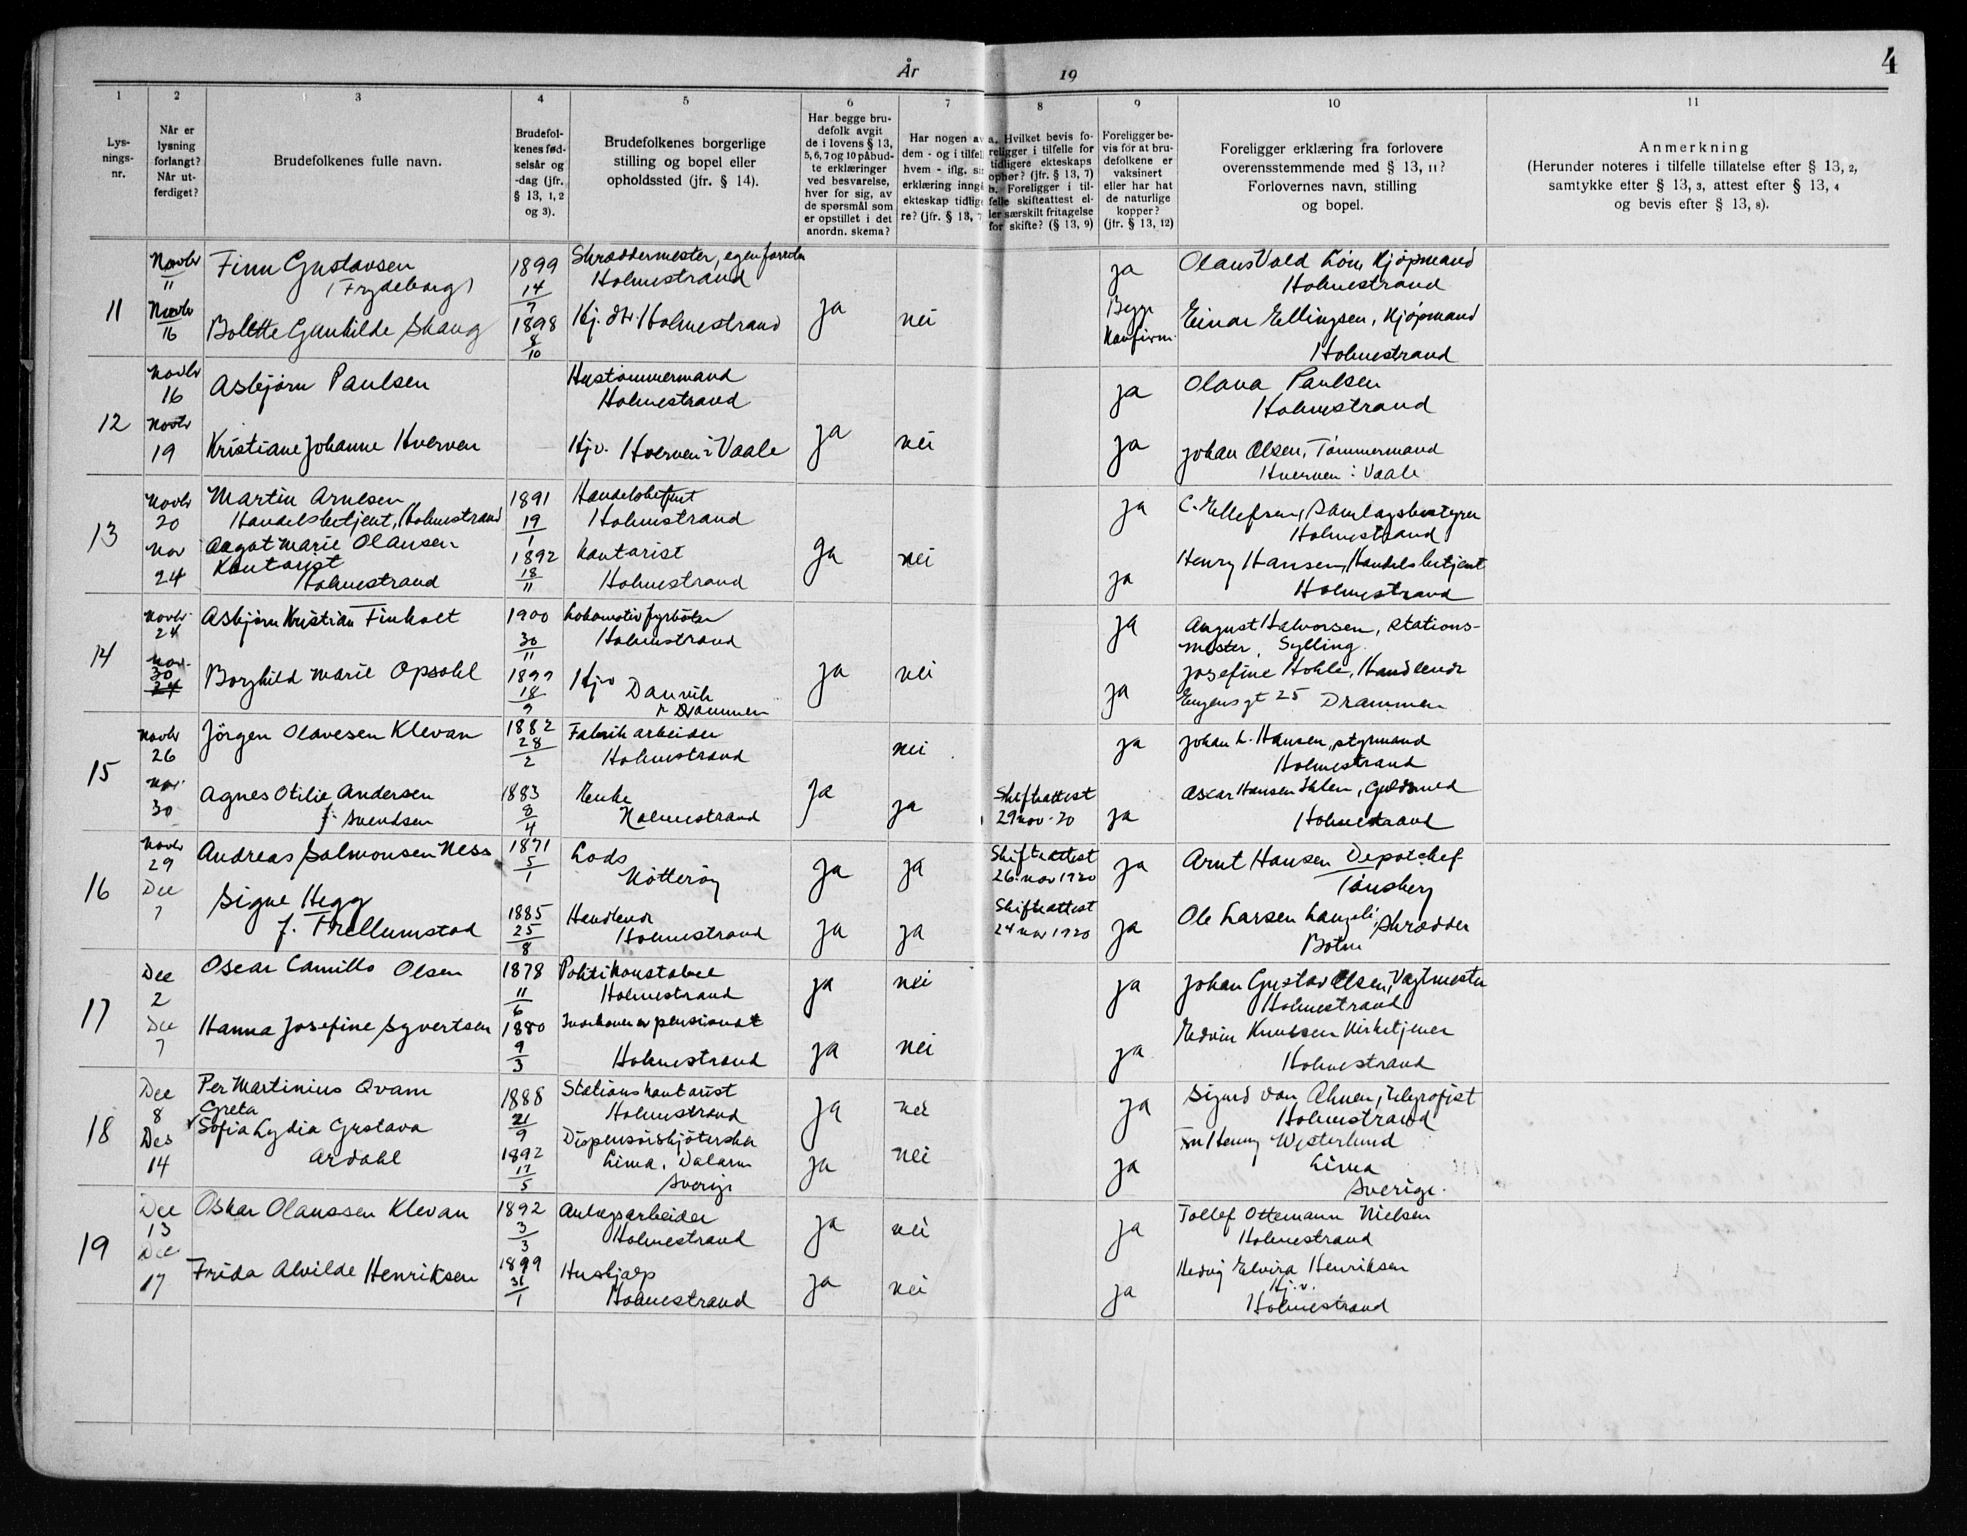 År 19
4
1 2 3 4 5 6 7 8 9 10 11
Lys-
nings-
nr.
Når er
lysning
forlangt?
Når ut-
ferdiget?
Brudefolkenes fulle navn.
Brudefol-
kenes fød-
selsår og
-dag (jfr.
§ 13, 1, 2
og 3).
Brudefolkenes borgerlige
stilling og bopel eller
opholdssted (jfr. § 14).
Har begge bru-
defolk avgit
de i lovens § 13,
5, 6, 7 og 10 påbud-
te erklæringer
ved besvarelse,
hver for sig, av
de spørsmål som
er opstillet i det
anordn. skema?
Har nogen av
dem - og i tilfel
hvem - iflg. si
erklæring inngå
ekteskap tidlig
re? (jfr. § 13, 7
a. Hvilket bevis fo-
religger i tilfelle for
tidligere ekteskaps
ophør? (jfr. § 13, 7)
b. Foreligger i til-
felle skifteattest el-
ler særskilt fritagelse
for skifte? (§ 13, 9)
Foreligger be-
vis for at bru-
defolkene er
vaksinert
eller har hat
de naturlige
kopper?
(jfr. § 13, 12)
Foreligger erklæring fra forlovere
overensstemmende med § 13, 11?
Forlovernes navn, stilling
og bopel.
Anmerkning
(Herunder noteres i tilfelle tillatelse efter § 13, 2,
samtykke efter § 13, 3, attest efter § 13, 4
og bevis efter § 13, 8).
11
Novbr 11
Finn Gustavsen
(Frydeborg)
1899 14/7
Skræddermester, egen
Holmestrand
ja
Olaus Vold Kjøpmand
Holmestrand
Novbr 16
Bolette Gunhilde Skaug
1898 8/10
Kj. dtr. Holmestrand
ja
nei
Begge
Konfirm.
Einar Ellingsen, Kjøpmand
Holmestrand
12
Novbr 16
Asbjørn Paulsen
Hustømmermand
Holmestrand
ja
Olava Paulsen
Holmestrand
Novbr 19
Kristiane Johanne Hverven
Kjv. Hverven i Vaale
ja
nei
ja
Johan Olsen, Tømmermand
Hverven i Vaale
13
Novbr 20
Martin Arnesen
Handelsbetjent, Holmestrand
1891 19/1
Handelsbetjent
Holmestrand
ja
C. Ellefsen, Samlagsbestyrer
Holmestrand
Nov 24
Aagot Marie Olausen
Kontorist
Holmestrand
1892 18/11
Kontorist
Holmestrand
ja
nei
ja
Henry Hansen, Handelsbetjent
Holmestrand
14
Novbr 24
Asbjørn Kristian Finholt
1900 30/11
Lokomotivfyrbøter
Holmestrand
ja
August Halvorsen, Stations-
mester, Sylling
Nov. 30 24
Borghild Marie Opsahl
1899 18/9
Kjv Danvik
p Drammen
ja
nei
ja
Josefine Hohle, Handlende
Engensgt 25 Drammen
15
Novbr 26
Jörgen Olavesen Klevan
1882 28/2
Fabrik arbeider
Holmestrand
nei
ja
Johan L. Hansen, styrmand
Holmestrand
Nov 30
Agnes Otilie Andersen
f. Svendsen
1883 8/4
Enke
Holmestrand
ja
ja
Skifteattest
29 nov. 20
ja
Oscar Hansen Ihlen, Guldsmed
Holmestrand
16
Novbr 29
Andreas Salmonsen Ness
1871 5/1
Lods
Nötteröy
ja
ja
Skifteattest
26. nov 1920
ja
Arnt Hansen Depotchef
Tønsberg
Dec 7
Signe Hegg
f. Frellumstad
1885 25/8
Handlende
Holmestrand
ja
ja
Skifteattest
24 nov 1920
ja
Ole Larsen Skrædder
Botne
17
Dec 2
Oscar Camillo Olsen
1878 11/6
Politikonstabel
Holmestrand
ja
nei
ja
Johan Gustav Olsen, Vagtmester
Holmestrand
Dec 7
Hanna Josefine Syvertsen
1880 9/3
Indehaver av pensionat
Holmestrand
ja
nei
ja
Edvin Knutsen Kirketjener
Holmestrand
18
Dec 8
Per Martinius Qvam
1888 21/9
Stationskontorist
Holmestrand
ja
nei
ja
Sigurd von Ahnen, Telegrafist
Holmestrand
Des 14
Greta
Sofia Lydia Gustava
Ardahl
1892 17/5
Dispensärskjöterska
Lima, Dalarne
Sverige
ja
nei
ja
Fru Henny Westerlund
Lima
Sverige.
19
Dec 13
Oskar Olaussen Klevan
1892 3/3
Anlægsarbeider
Holmestrand
ja
nei
ja
Tollef Ottemann Nielsen
Holmestrand
Dec 17
Frida Alvilde Henriksen
1899 31/1
Hushjælp
Holmestrand
ja
nei
ja
Hedvig Elvira Henriksen
Kj.v.
Holmestrand